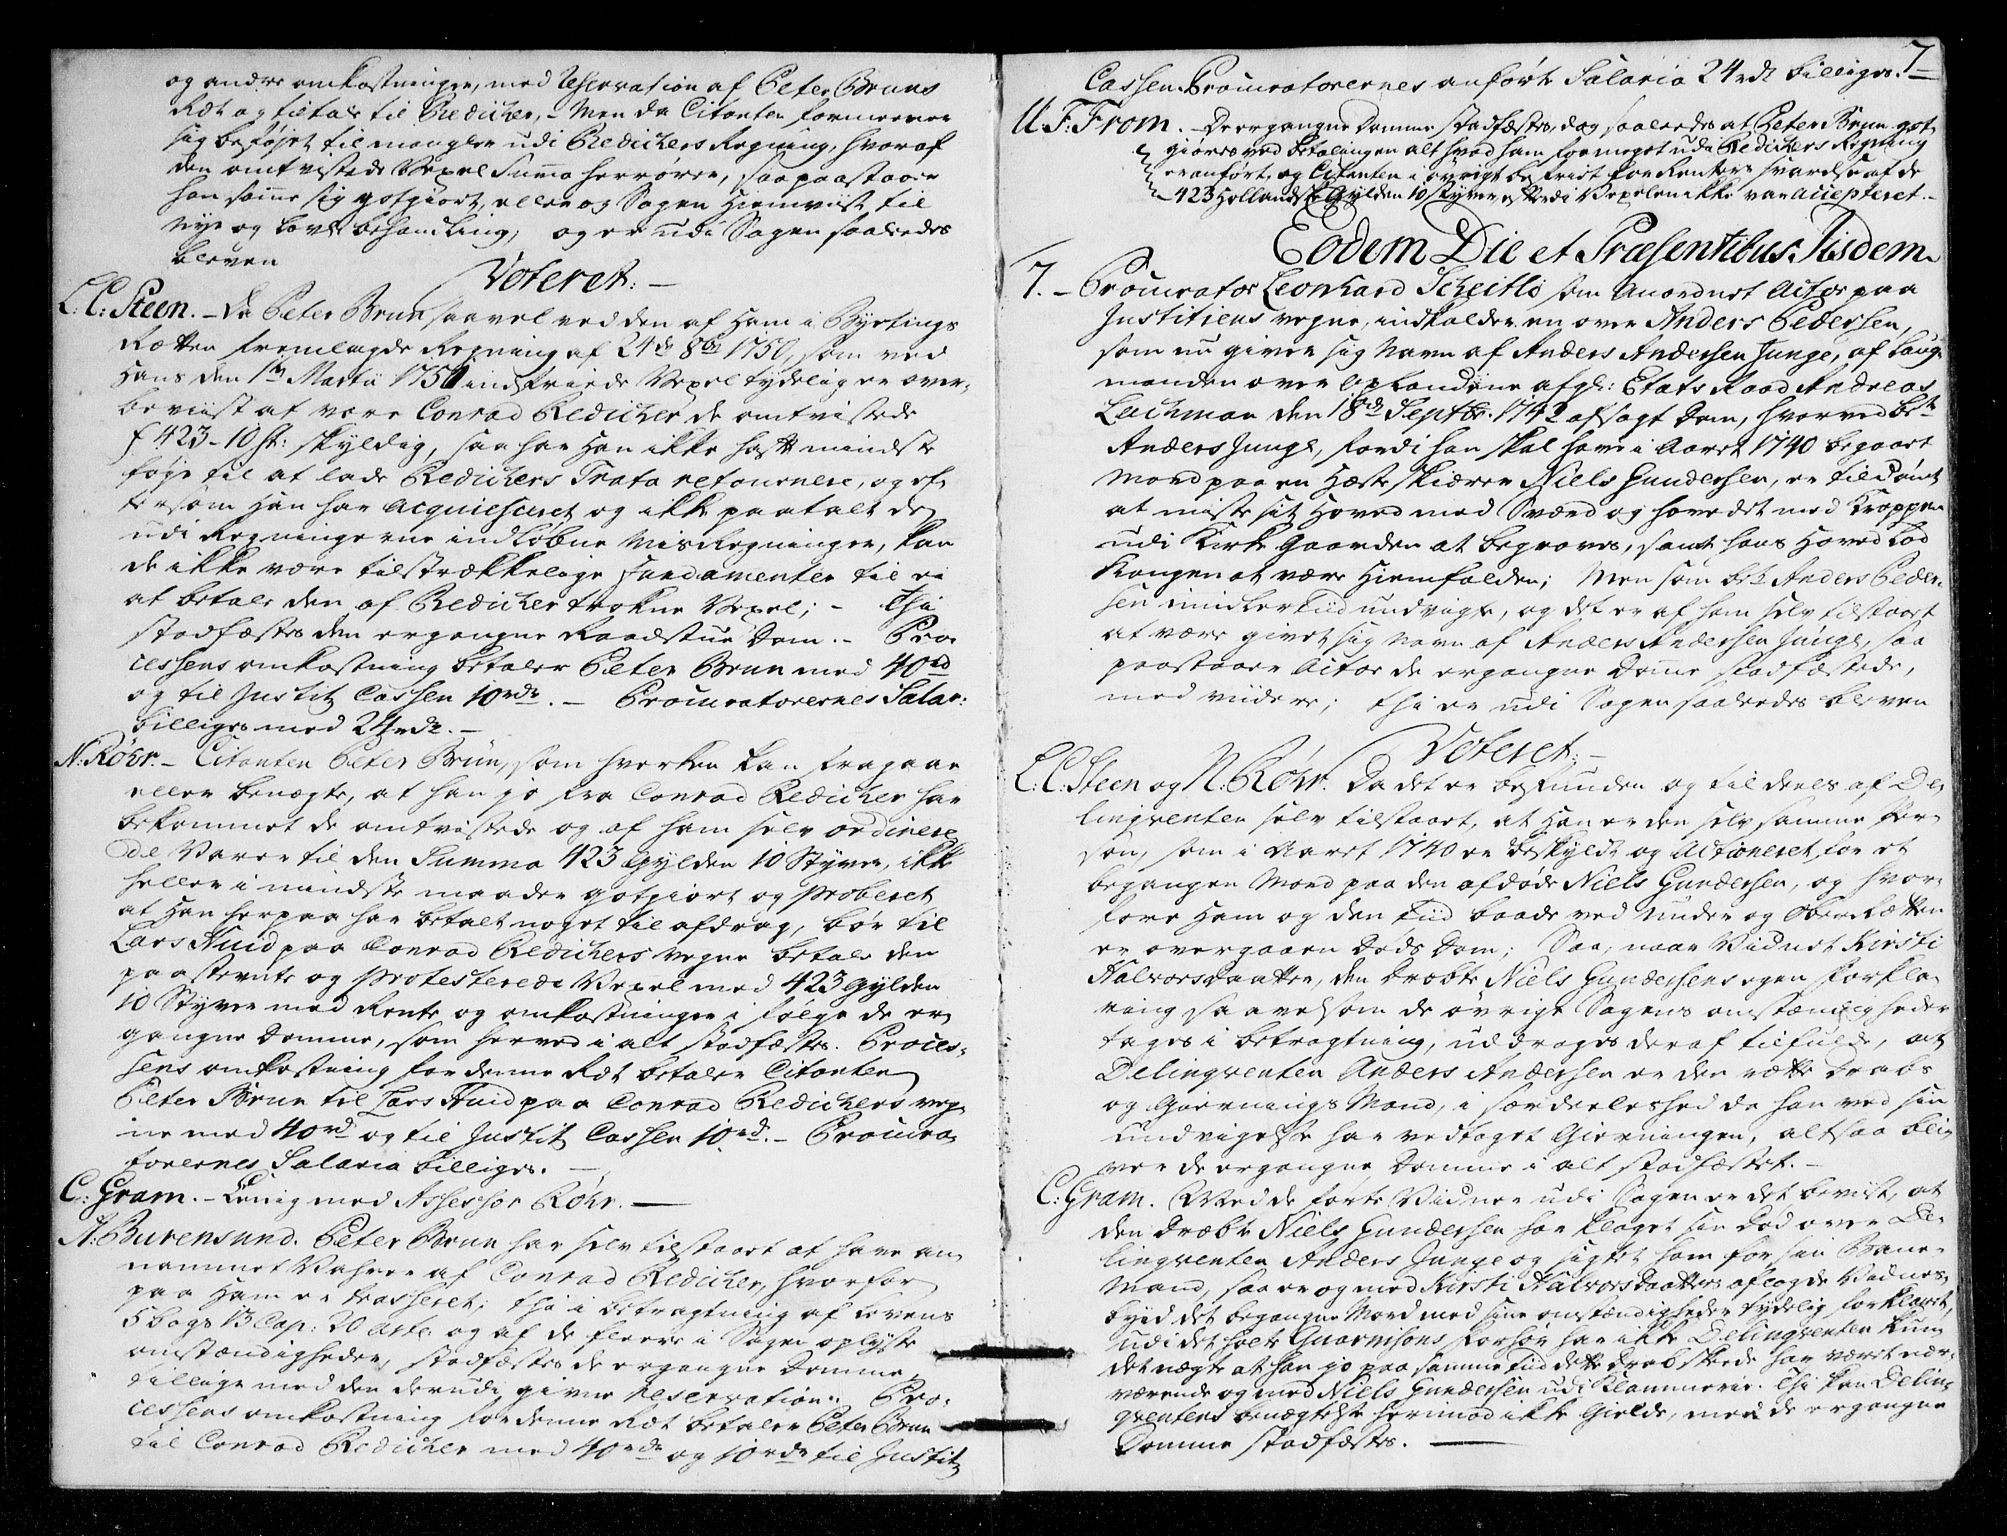 og andre omkostninger, med Reservation af Peter Bruns
Ret og tiltale til Redicher, - Men da Citanten formeener
sig beføjet til mangler udi Redichers Regning, hvoraf
den omtvistede Vexel Suma herrører, saa paastaaer
han samme sig gotgiort, eller og Sagen Hiemviist til
nye og Lovl: behandling; og er udi Sagen saaledes
bleven
Voteret: -
C: C: Steen. - Da Peter Brun saavel ved den af Ham i Byetings
Retten fremlagde Regning af 24de 8br 1750, som ved
Hans den 1te Martii 1751 indfriede Vexel tydelig er over-
beviist at være Conrad Redicher de omtvistede
f 423 - 10 st: skyldig, saa har Han ikke hatt mindste
føye til at lade Redichers Trata retournere, og ef-
tersom Han har acquiesceret og ikke paatalt de
udi Regningerne indløbne MisRegninger, kan
de ikke være tilstrækkelige Fundamenter til ei
at betale den af Redicher trokne Vexel; - Thi
stadfæstes den ergangne Raadstue Dom. - Pro-
cessens omkostning betaler Peter Brun med 40 rd
og til Justitz Cassen 10 rdr. - Procuratorernes Salar:
billiges med 24 rdr. -
N: Röhr. - Citanten Peter Brün, som hverken kan fragaae
eller benægte, at han jo fra Conrad Redicher har
bekommet de omtvistede og af ham selv ordinere
de Varer til den Summa 423 Gylden 10 Styver, ikke
heller i mindste maader gotgiort og proberet
at Han herpaa har betalt noget til afdrag, bør til
Lars Huid paa Conrad Redichers vegne betale den
paastevnte og protesterede Vexel med 423 Gylden
10 Styver med Rente og omkostninger i følge de er-
gangne Domme, som herved i alt stadfæstes. Proces-
sens omkostning for denne Ret betaler Citanten
Peter Brun til Lars Huid paa Conrad Redichers veg-
ne med 40 rd og til Justitz Cassen 10 rd. - Procura-
torernes Salaria billiges. -
C: Gram. - Eenig med Assessor Röhr. -
A: Burensund. Peter Brun har selv tilstaaet at have an-
nammet Vahrer af Conrad Redicher, hvorfor
paa Ham er trasseret; thi i betragtning af Lovens
5 bogs 13 Cap: 20 Artl: og af de fleere i Sagen oplyste
omstændigheder, stadfæstes de ergangne Domme
tillige med den derudi givne Reservation. Pro-
cessens omkostning for denne Ret betaler Peter Brun
til Conrad Redicher med 40 rdr og 10 rdr til Justitz
7
Cassen. Procuratorernes anførte Salaria 24 rdr billiges.
U. F: From. - De ergangne Domme stadfæstes, dog saaledes at Peter Brun got
giøres ved betalingen alt hvad ham for meget udi Redichers Regning
er anført, og Citanten i øvrigt befries for Rentes svarelse af de
423 Hollandske Gylden 10 Styver, efterdi Vexelen ikke var accepteret. -
Eodem Die et Præsentibus Iisdem.
7. - Procurator Leonhard Scheitlö som Anordnet Actor paa
Justitiens vegne, indkalder en over Anders Pedersen,
som nu giver sig Navn af Anders Andersen Junge, af Laug-
manden over Oplandene afgl: Etats Raad Andreas
Lachman den 18de Septbr: 1742 afsagt Dom, hvorved bte
Anders Junge, fordi han skal have i Aaret 1740 begaaet
Mord paa en Hæsteskiærer Niels Gundersen, er tildømt
at miste sit Hoved med Sværd og hovedet med Kroppen
udi Kirke Gaarden at begraves, samt hans Hoved Lod
Kongen at være Hiemfalden; Men som bte Anders Peder-
sen imidlertiid undvigte, og det er af ham selv tilstaaet
at være givet sig Navn af Anders Andersen Junge, saa
paastaaer Actor de ergangne Domme stadfæstede,
med viidere; thi er udi Sagen saaledes bleven
Voteret: -
C: C: Steen og N: Röhr. Da det er befunden og tildeels af De-
linqventen selv tilstaaet, at Han er den selv samme Per-
son, som i Aaret 1740 er beskyldt og Actioneret for et
begangen Mord paa den afdøde Niels Gundersen, og hvor-
fore Ham og den Tiid baade ved Under og Ober Retten
er overgaaen Døds Dom; Saa, naar Vidnet Kirsti
Halvorsdaatter, den dræbte Niels Gundersens egen forkla-
ring saavelsom de øvrige Sagens omstændigheder
tages i betragtning, uddrages deraf tilfulde, at
Delinqventen Anders Andersen er den rette Drabs
og Gierningsmand, i særdeleshed da han ved sin
undvigelse har vedtaget Gierningen, altsaa bli-
ver de ergangne Domme i alt stadfæstet. -
C: Gram. Med de førte Vidner udi Sagen er det beviist, at
den dræbte Niels Gundersen har klaget sin død over De-
linqventen Anders Junge og sigtet ham for sin Bane-
Mand, saa er og med Kirsti Halvorsdaatters aflagde Vidnes-
byrd det begangne Mord med sine omstændigheder tydelig forklaret,
udi det holte Forhør har ikke Delinqventen kun
det nægte at han jo paa samme tiid dette drab skeede har været nær-
værende og med Niels Gundersen udi Klammerie. Thi kan Delin-
qventens benægtelse herimod ikke Gielde, men de ergangne
Domme stadfæstes. -